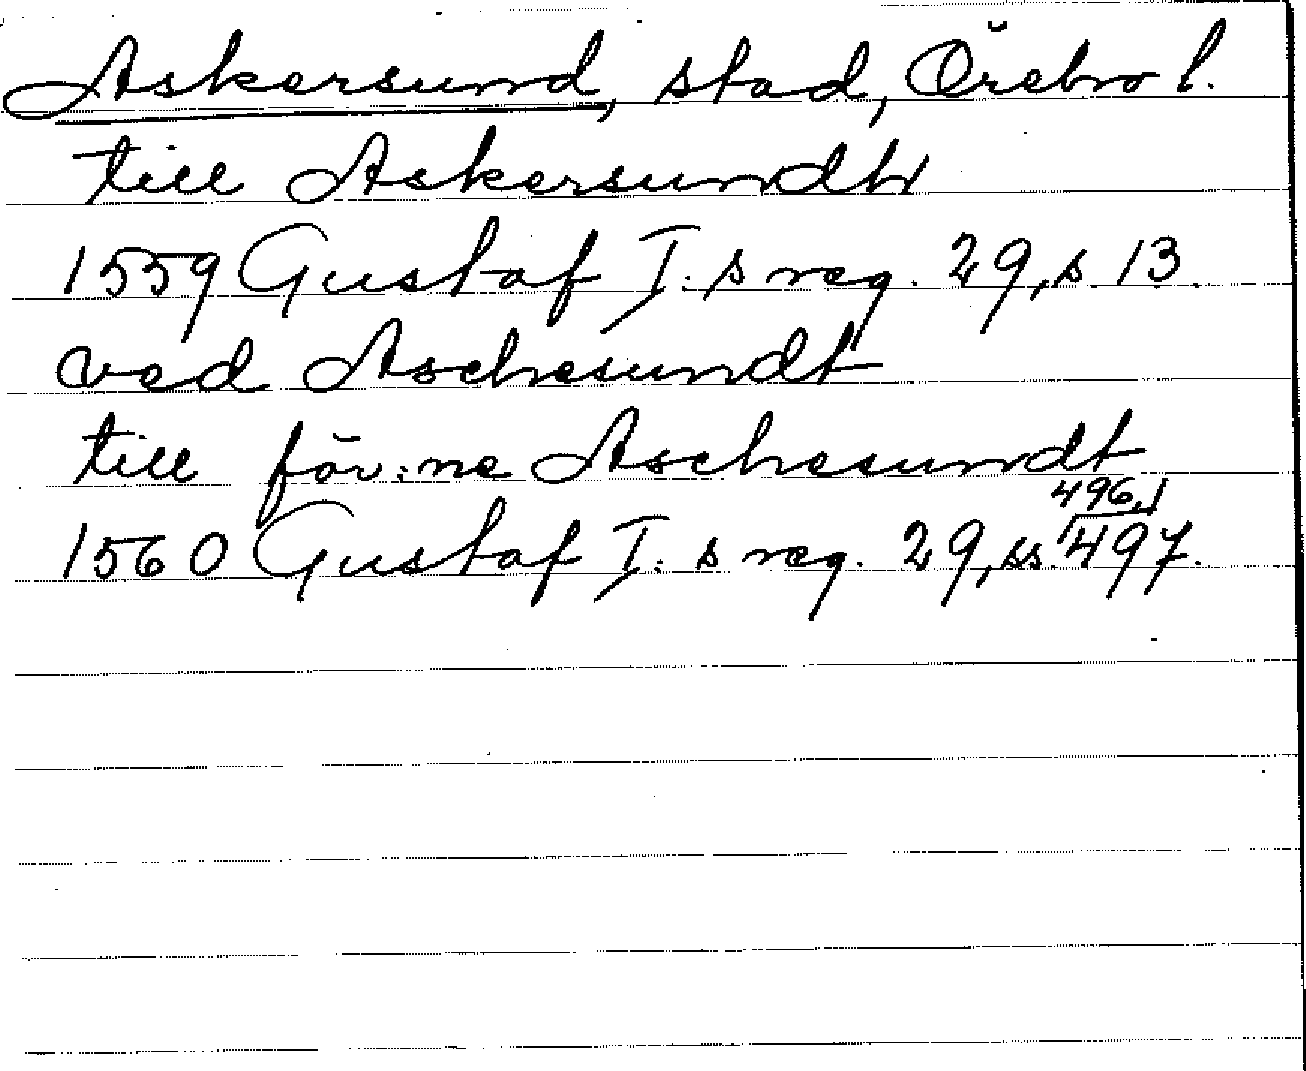 Askersund, stad, Örebro l.
till Askersundh
1559 Gustaf I:s reg. 29, s. 13.
ved Aschesundt
till för:ne Aschesundt
1560 Gustaf I:s reg. 29, ss. 496, 497.